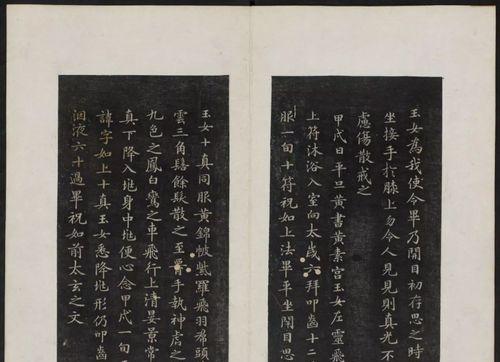 玉女為我使令畢乃開目初存思之時
坐接手於膝上勿令人見見則真光不
慮傷散戒之
甲戌日平旦黃書黃素宮玉女左靈飛
上符沐浴入室向太歲六拜叩齒十二
服一旬十符祝如上法畢平坐閉目思
玉女十真同服黃錦帔紫羅飛羽裙頭
雲三角髻餘髮散之至腰手執神虎之
九色之鳳白鸞之車飛行上清晏景常
真下降入地身中地便心念甲戌一旬
諱字如上十真玉女悉降地形仍叩齒
咽液六十過畢祝如前太玄之文